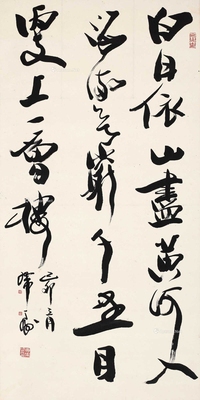 白日依山盡黃河入
海流欲窮千里目
更上一層樓
卯月